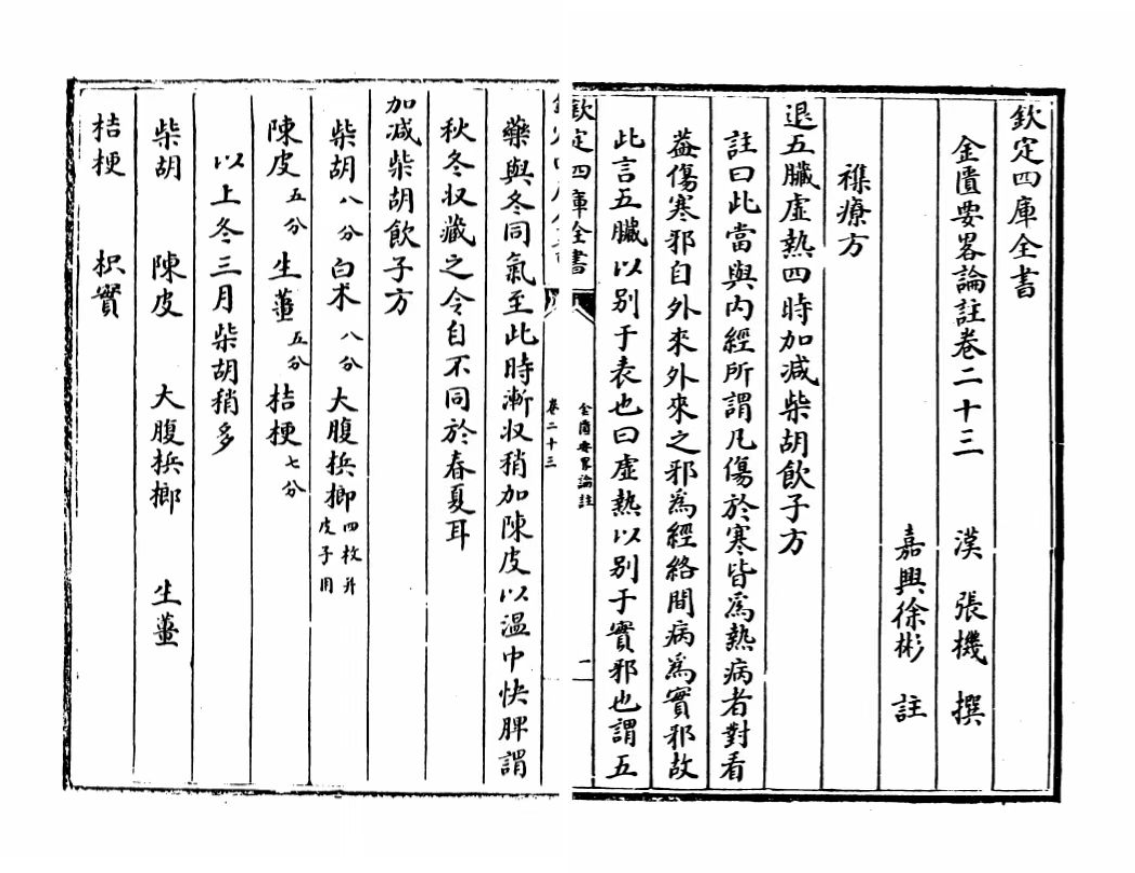 欽定四庫全書
金匱要畧論註卷二十三
漢 張機 撰
嘉興徐彬 註
襍療方
退五臟虛熱四時加减柴胡飲子方
註曰此當與内經所謂凡傷於寒皆爲熱病者對看
葢傷寒邪自外來外來之邪爲經絡間病爲實邪故
此言五臟以别于表也曰虛熱以别于實邪也謂五
欽定四庫全書
金匱要畧論註
卷二十三
一
藥與冬同氣至此時漸収稍加陳皮以温中快脾謂
秋冬収藏之令自不同於春夏耳
加减柴胡飲子方
柴胡八分 白术八分 大腹梹榔四枚并皮子用
陳皮五分 生薑五分 桔梗七分
以上冬三月柴胡稍多
柴胡 陳皮 大腹梹榔 生薑
桔梗 枳實